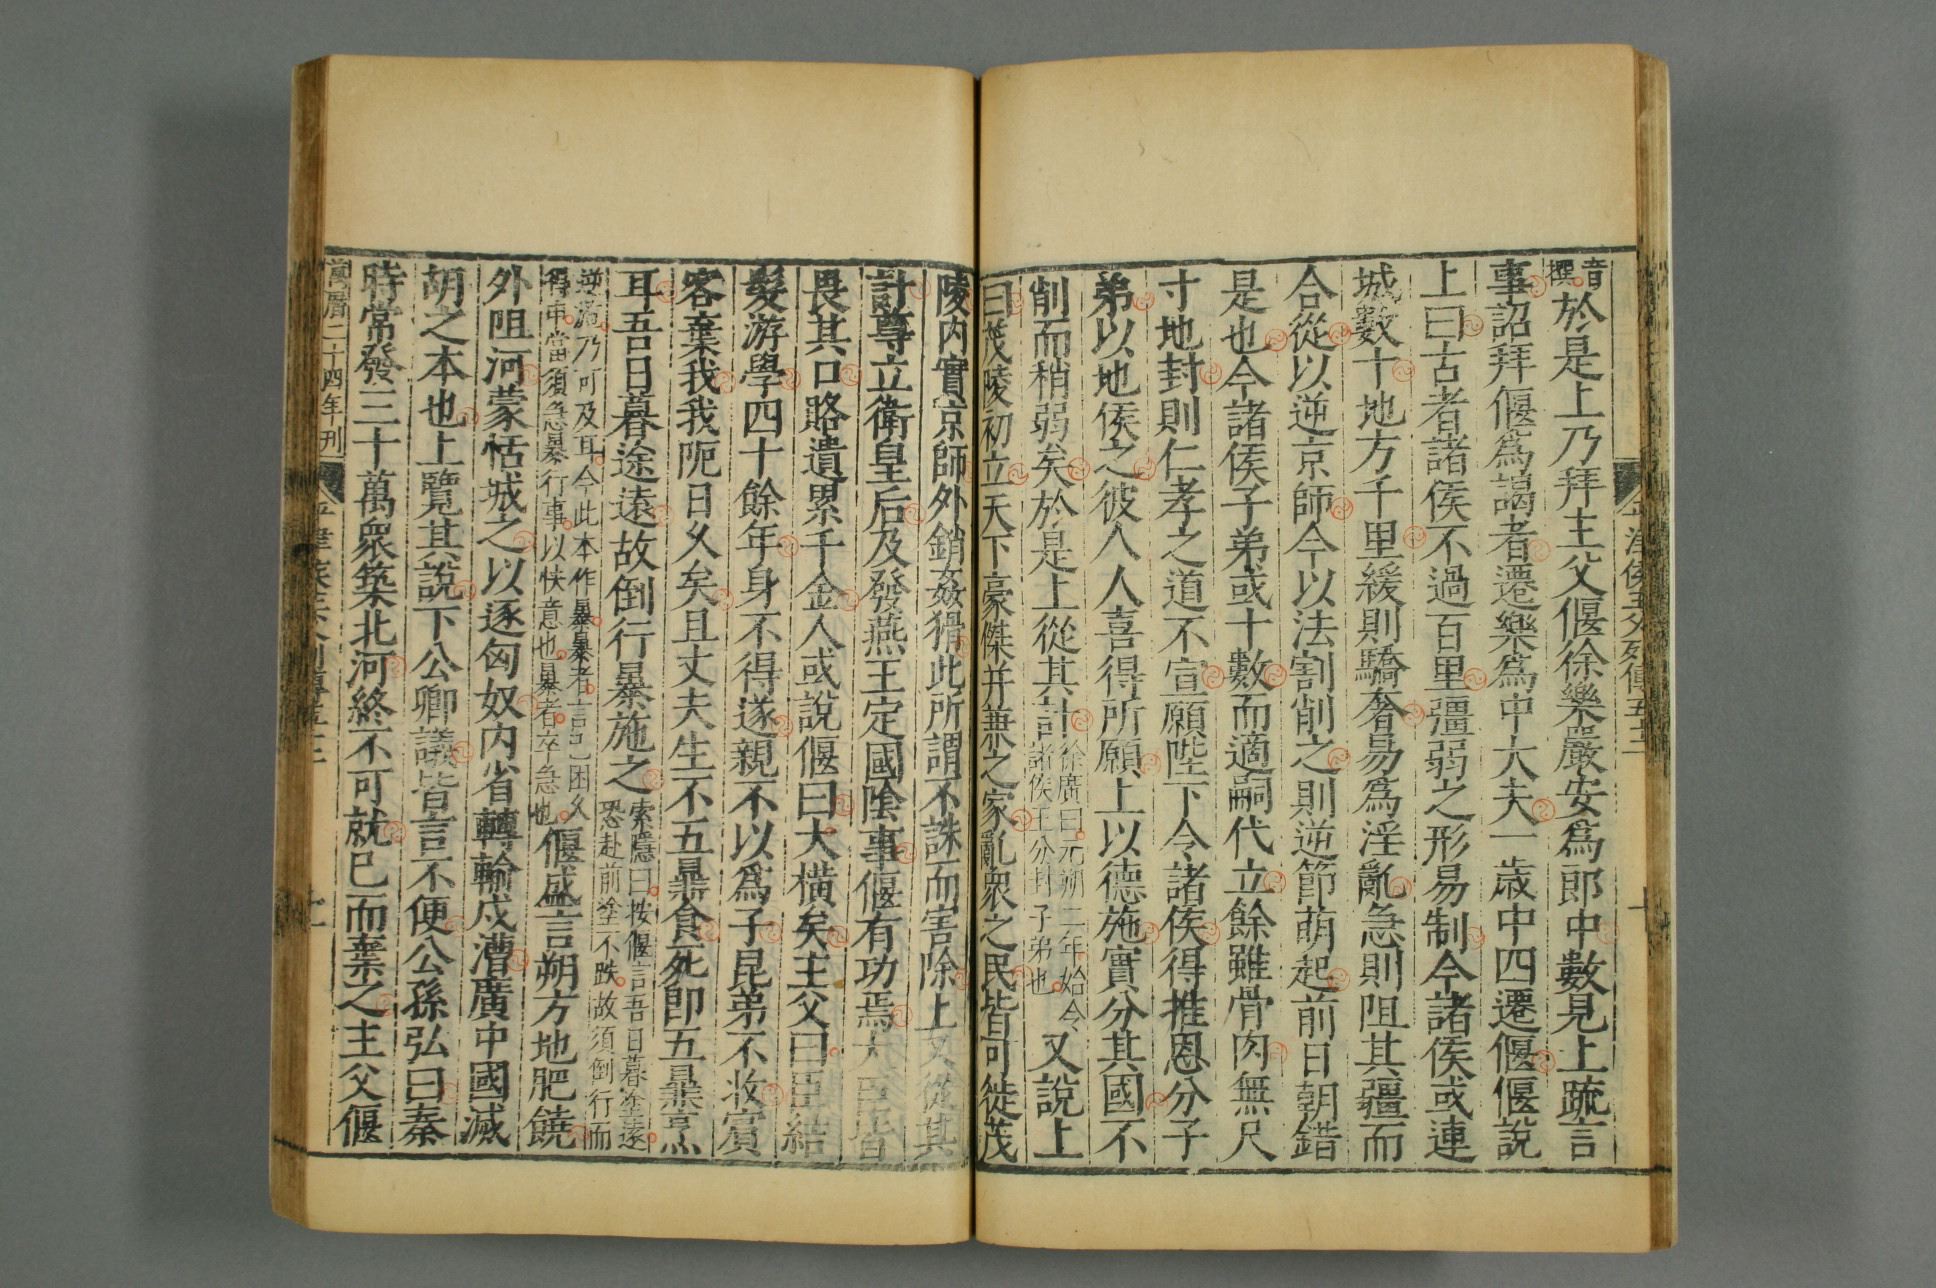 音撰於是上乃拜主父偃徐樂嚴安爲郎中數見上疏言
事詔拜偃爲謁者遷樂爲中大夫一歲中四遷偃偃說
上曰古者諸侯不過百里彊弱之形易制今諸侯或連
城數十地方千里緩則驕奢易爲淫亂急則阻其疆而
合從以逆京師今以法割削之則逆節萌起前日朝錯
是也今諸侯子弟或十數而適嗣代立餘雖骨肉無尺
寸地封則仁孝之道不宣願陛下令諸侯得推恩分子
弟以地侯之彼人人喜得所願上以德施實分其國不
削而稍弱矣於是上從其計徐廣曰元朔二年始令諸侯王分封子弟也又說上
曰茂陵初立天下豪傑并兼之家亂衆之民皆可徙茂
陵內實京師外銷姦猾此所謂不誅而害除上又從其
計尊立衛皇后及發燕王定國陰事偃有功焉大臣皆
畏其口路遺累千金人或說偃曰大橫矣主父曰臣結
髮游學四十餘年身不得遂親不以爲子昆弟不收賓
客棄我我阨日久矣且丈夫生不五鼎食死即五鼎烹
耳吾日暮途遠故倒行暴施之索隱曰按偃言吾日暮途遠恐赴前途不跌故須倒行而
逆施乃可及耳今此本作暴暴者言已困久得申當須急暴行事以快意也暴者卒急也偃盛言朔方地肥饒
外阻河蒙恬城之以逐匈奴內省轉輸戍漕廣中國滅
胡之本也上覽其說下公卿議皆言不便公孫弘曰秦
時常發三十萬衆築北河終不可就已而棄之主父偃
萬曆二十四年刊